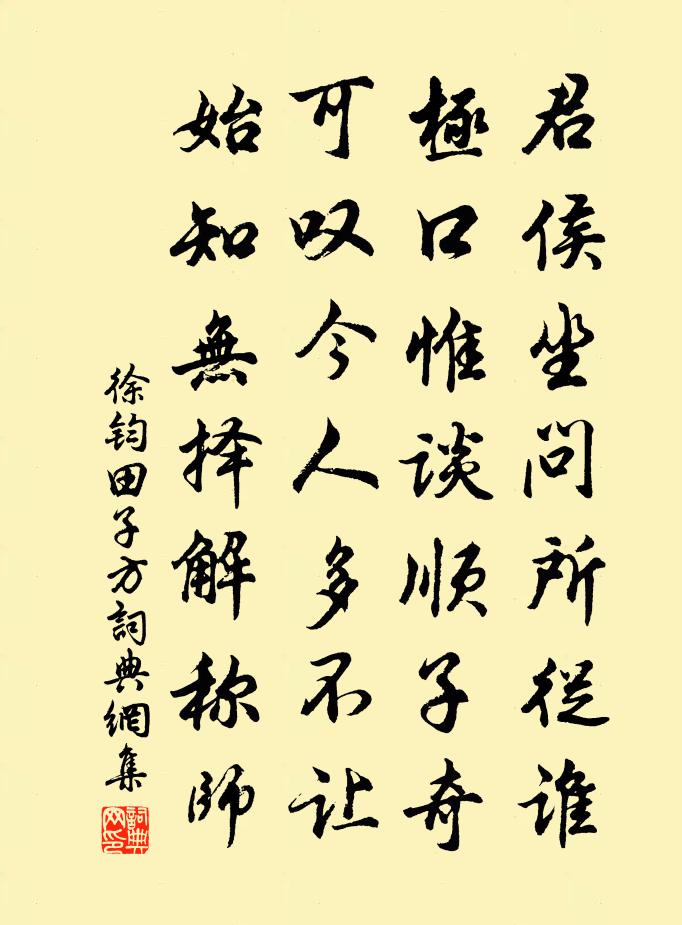 君侯坐问所從谁
極口惟谈顺子奇
可叹今人多不让
始知無择解称師
徐钧田子方詞典網集
詞典網印